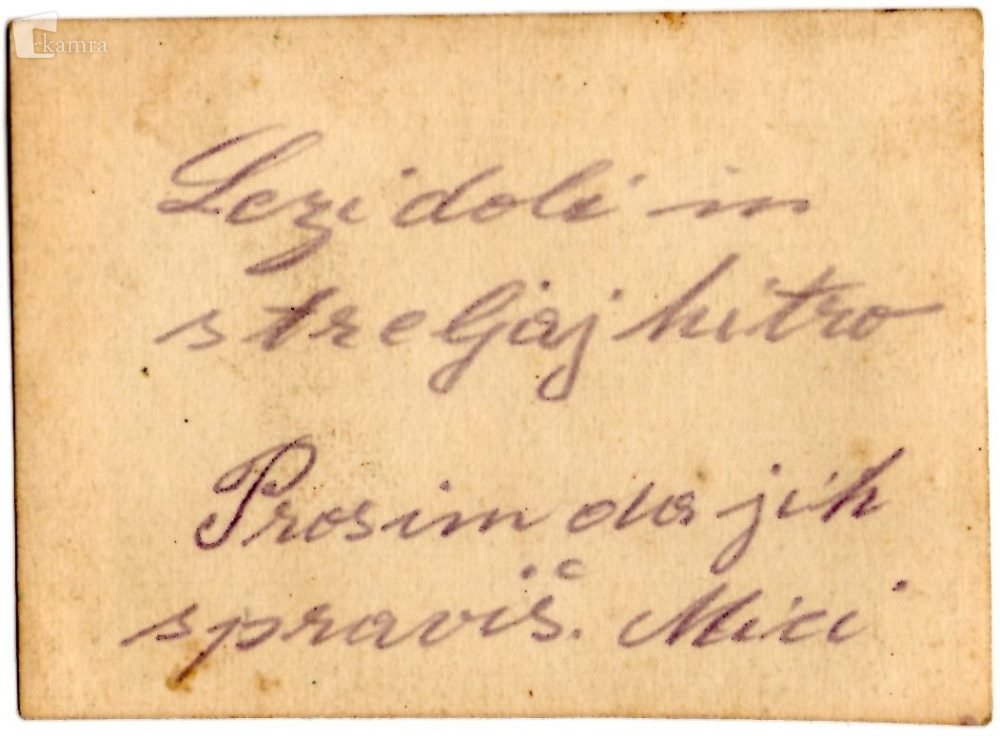 kamra
Lezi doli in
streljaj hitro
Prosim da jih
spraviš. Mici